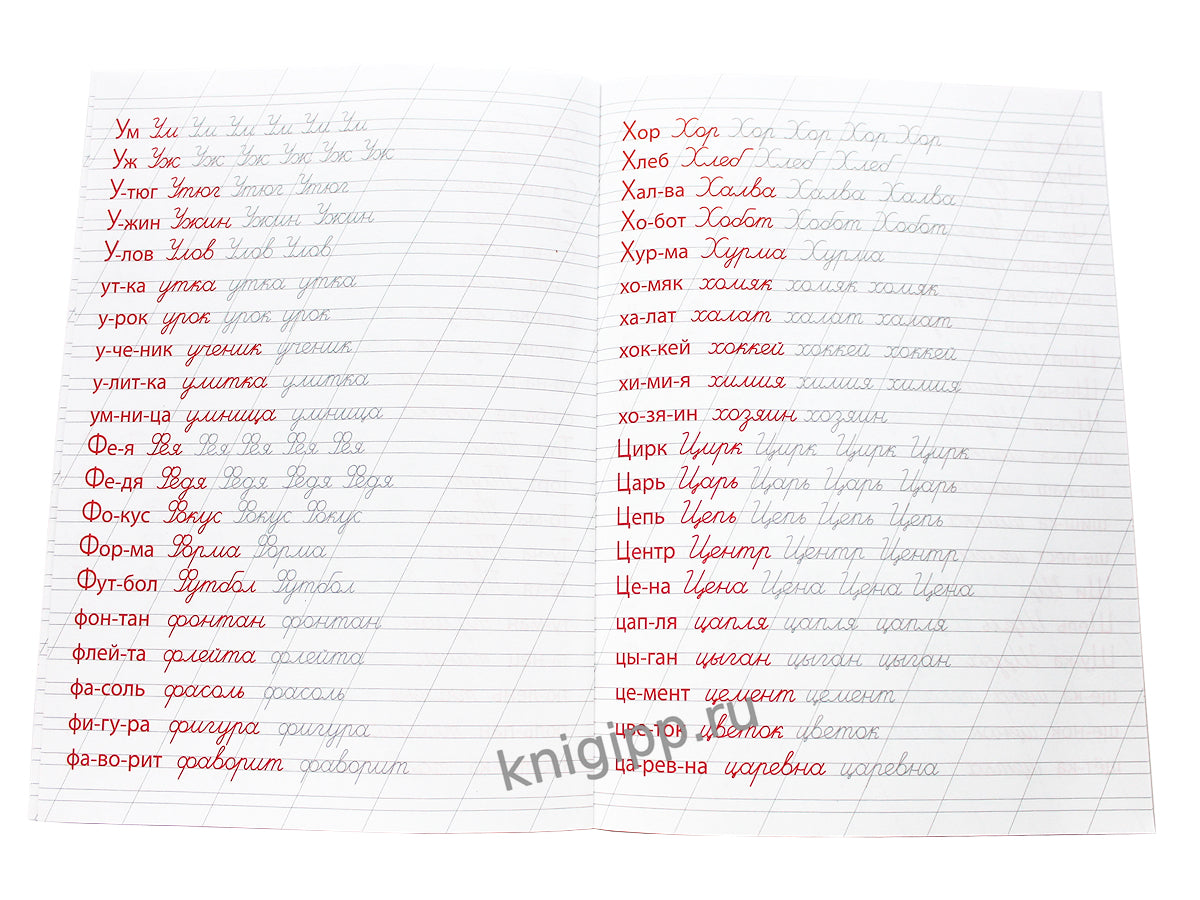 Ум Ум Ум Ум Ум Ум Ум
Уж Уж Уж Уж Уж Уж Уж
У-тюг Утюг Утюг Утюг
У-жин Ужин Ужин Ужин
У-лов Улов Улов Улов
ут-ка утка утка утка
у-рок урок урок урок
у-че-ник ученик ученик
у-лит-ка улитка улитка
ум-ни-ца умница умница
Фе-я Фея Фея Фея Фея Фея
Фе-дя Федя Федя Федя Федя
Фо-кус Фокус Фокус Фокус
Фор-ма Форма Форма
Фут-бол Футбол Футбол
фон-тан фонтан фонтан
флей-та флейта флейта
фа-соль фасоль фасоль
фи-гу-ра фигура фигура
фа-во-рит фаворит фаворит
Хор Хор Хор Хор Хор Хор
Хлеб Хлеб Хлеб Хлеб
Хал-ва Халва Халва Халва
Хо-бот Хобот Хобот Хобот
Хур-ма Хурма Хурма
хо-мяк хомяк хомяк хомяк
ха-лат халат халат халат
хок-кей хоккей хоккей хоккей
хи-ми-я химия химия химия
хо-зя-ин хозяин хозяин
Цирк Цирк Цирк Цирк Цирк
Царь Царь Царь Царь Царь
Цепь Цепь Цепь Цепь Цепь
Центр Центр Центр Центр
Це-на Цена Цена Цена Цена
цап-ля цапля цапля цапля
цы-ган цыган цыган цыган
це-мент цемент цемент
цве-ток цветок цветок
ца-рев-на царевна царевна
knigipp.ru